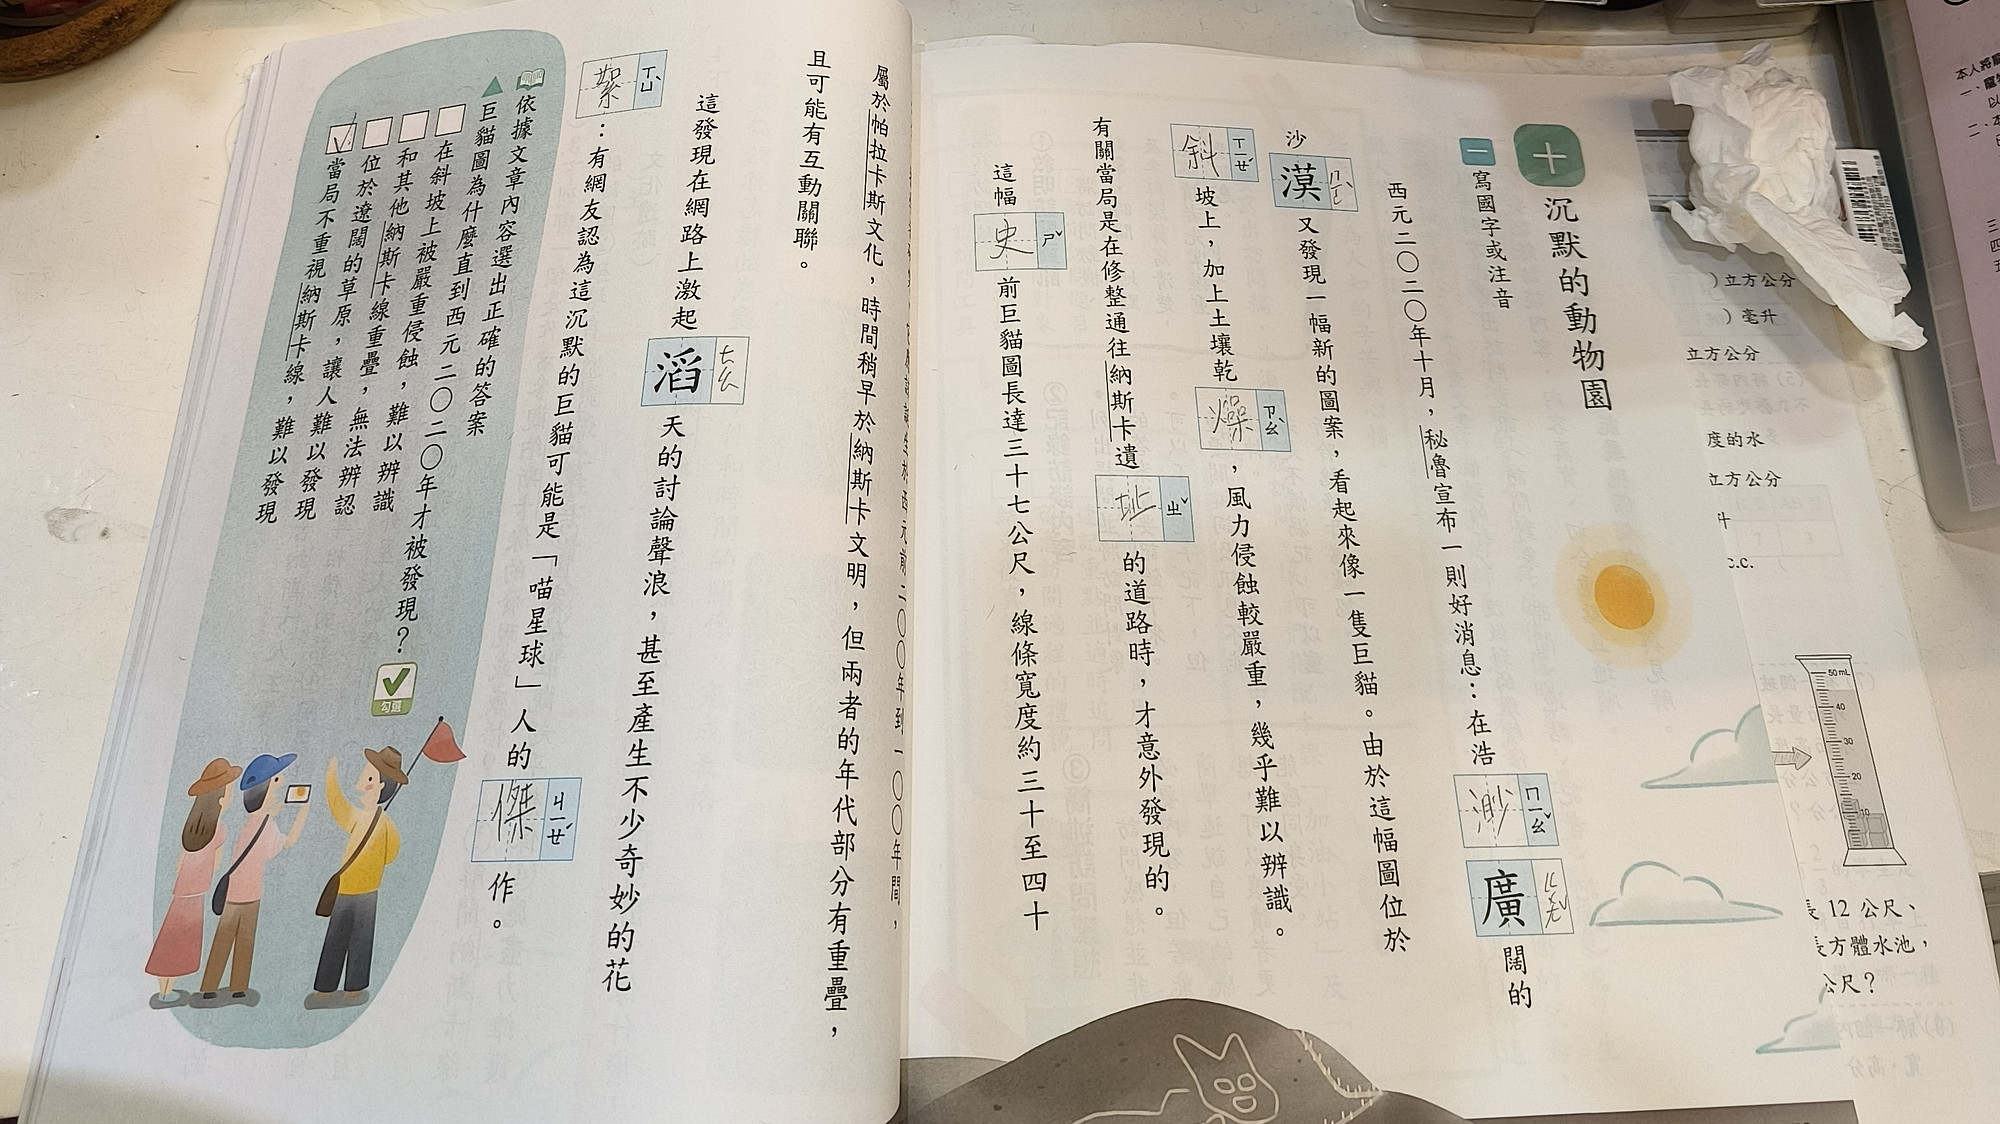 十 沉默的動物園
一 寫國字或注音
西元二〇二〇年十月，秘魯宣布一則好消息：在浩渺ㄇㄧㄠˇ廣ㄍㄨㄤˇ闊的
沙漠ㄇㄛˋ又發現一幅新的圖案，看起來像一隻巨貓。由於這幅圖位於
斜ㄒㄧㄝˊ坡上，加上土壤乾燥ㄗㄠˋ，風力侵蝕較嚴重，幾乎難以辨識。
有關當局是在修整通往納斯卡遺址ㄓˇ的道路時，才意外發現的。
這幅史ㄕˇ前巨貓圖長達三十七公尺，線條寬度約三十至四十
西元前二〇〇年到一〇〇年間，
屬於帕拉卡斯文化，時間稍早於納斯卡文明，但兩者的年代部分有重疊，
且可能有互動關聯。
這發現在網路上激起滔ㄊㄠ天的討論聲浪，甚至產生不少奇妙的花
絮ㄒㄩˋ：有網友認為這沉默的巨貓可能是「喵星球」人的傑ㄐㄧㄝˊ作。
依據文章內容選出正確的答案
▲巨貓圖為什麼直到西元二〇二〇年才被發現？
勾選
□在斜坡上被嚴重侵蝕，難以辨識
□和其他納斯卡線重疊，無法辨認
□位於遼闊的草原，讓人難以發現
☑當局不重視納斯卡線，難以發現
）立方公分
）毫升
立方公分
度的水
立方公分
升
c.c.
50 mL
40
30
20
10
長 12 公尺、
長方體水池，
公尺？
本人將
一、
二、
三
四
五